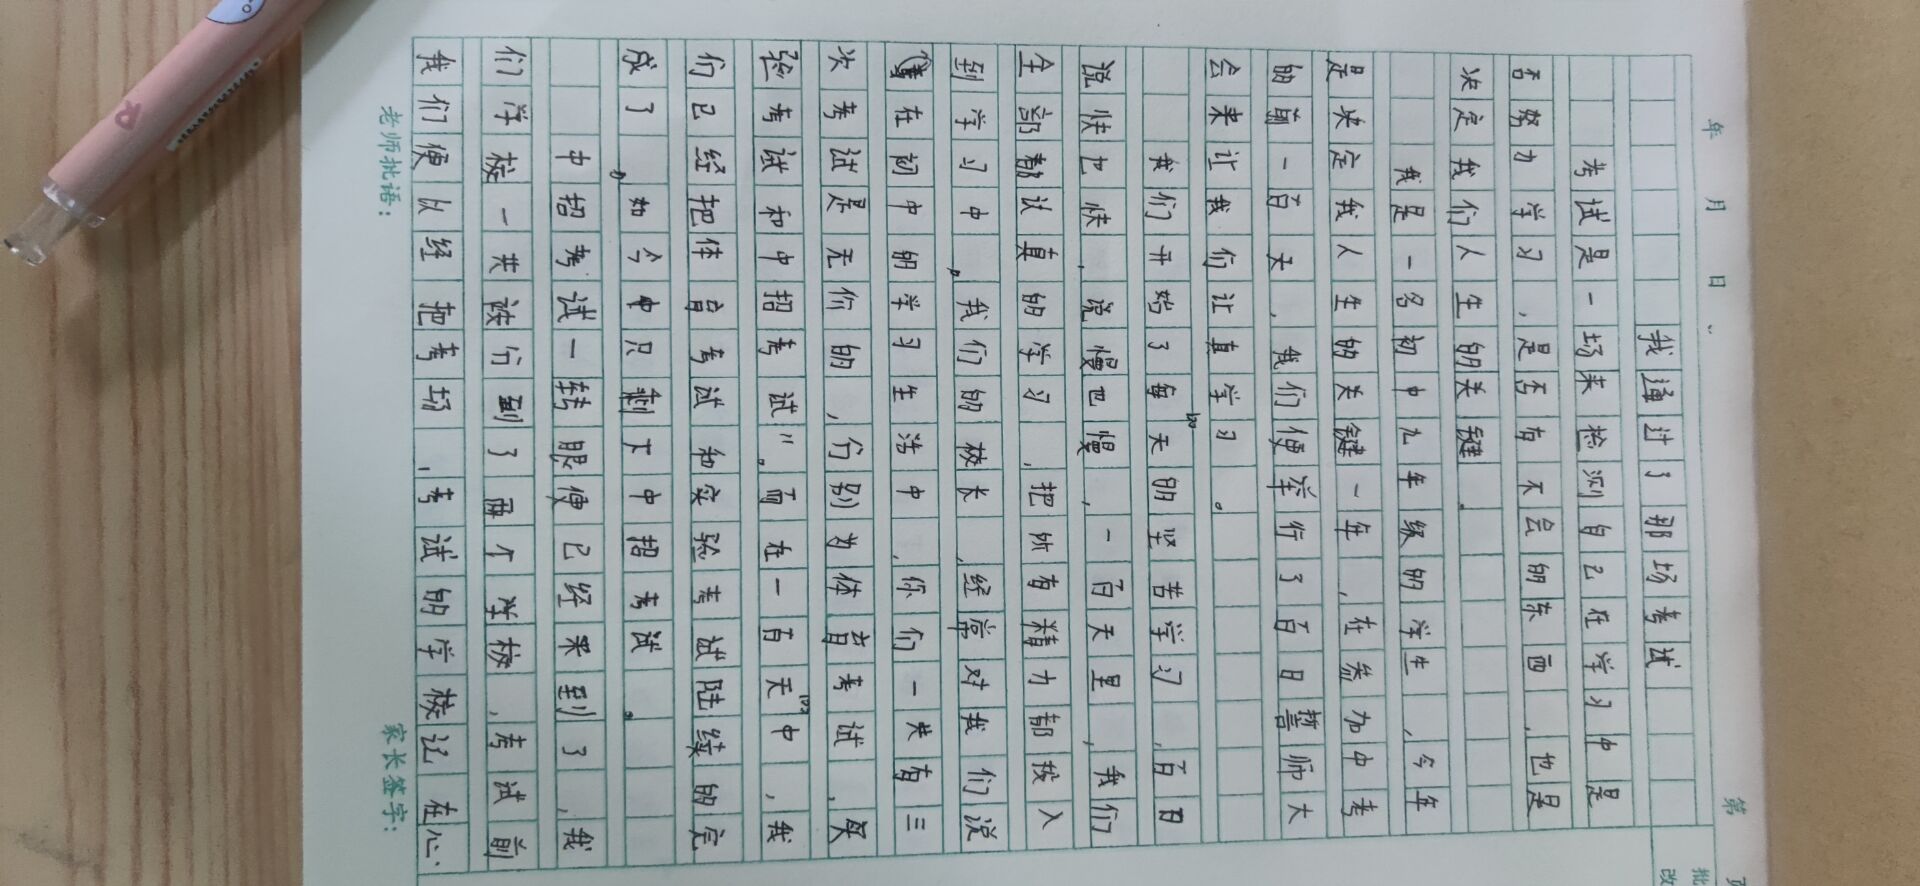 年 月 日
第 页
批改
我通过了那场考试
考试是一场来检测自己在学习中是
否努力学习，是否有不会的东西，也是
决定我们人生的关键。
我是一名初中九年级的学生，今年
是决定我人生的关键一年，在参加中考
的前一百天，我们便举行了百日誓师大
会来让我们让真学习。
我们开始了每天的坚苦学习，百日
说快也快，说慢也慢，一百天里，我们
全部都认真的学习，把所有精力都投入
到学习中。我们的校长，经常对我们说
在初中的学习生活中，你们一共有三
次考试是无价的，分别为体育考试，实
验考试和中招考试"。而在一百天中，我
们已经把体育考试和实验考试陆续的完
成了。如今中只剩下中招考试。
中招考试一转眼便已经来到了，我
们学校一共被份到了两个学校，考试前
我们便以经把考场，考试的学校记在心
老师批语： 家长签字：